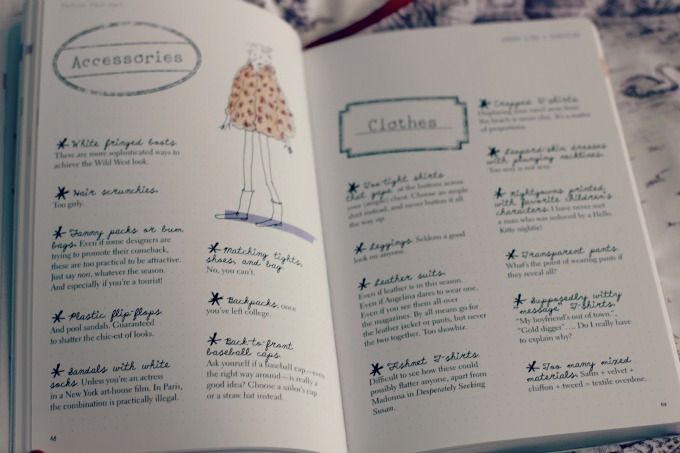 Accessories
* White fringed boots.
There are more sophisticated ways to
achieve the Wild West look.
* Hair scrunchies.
Too girly.
* Fanny packs or bum
bags. Even if some designers are
trying to promote their comeback,
these are too practical to be attractive.
Just say non, whatever the season.
And especially if you're a tourist!
* Plastic flip-flops
And pool sandals. Guaranteed
to shatter the chic-est of looks.
* Sandals with white
socks. Unless you're an actress
in a New York art-house film. In Paris,
the combination is practically illegal.
* Matching tights,
shoes, and bag
No, you can't.
* Backpacks, once
you've left college.
* Back-to-front
baseball caps.
Ask yourself if a baseball cap—worn
the right way around—is really a
good idea? Choose a sailor's cap
or a straw hat instead.
68
Clothes
* Too tight shirts
that gape at the buttons across
your (ample) chest. Choose an ample
shirt instead, and never button it all
the way up.
* Leggings. Seldom a good
look on anyone.
* Leather suits.
Even if leather is in this season.
Even if Angelina dares to wear one.
Even if you see them all over
the magazines. By all means go for
the leather jacket or pants, but never
the two together. Too showbiz.
* Fishnet T-shirts.
Difficult to see how these could
possibly flatter anyone, apart from
Madonna in Desperately Seeking
Susan.
* Cropped T-shirts
Displaying your navel away from
the beach is never chic. It's a matter
of proportions.
* Leopard-skin dresses
with plunging necklines.
Too sexy is not sexy.
* Nightgowns printed
with favorite children's
characters. I have never met
a man who was seduced by a Hello
Kitty nightie!
* Transparent pants.
What's the point of wearing pants if
they reveal all?
* Supposedly witty
"message" T-shirts.
"My boyfriend's out of town."
"Gold digger" … Do I really have
to explain why?
* Too many mixed
materials. Satin + velvet +
chiffon + tweed = textile overdose.
69